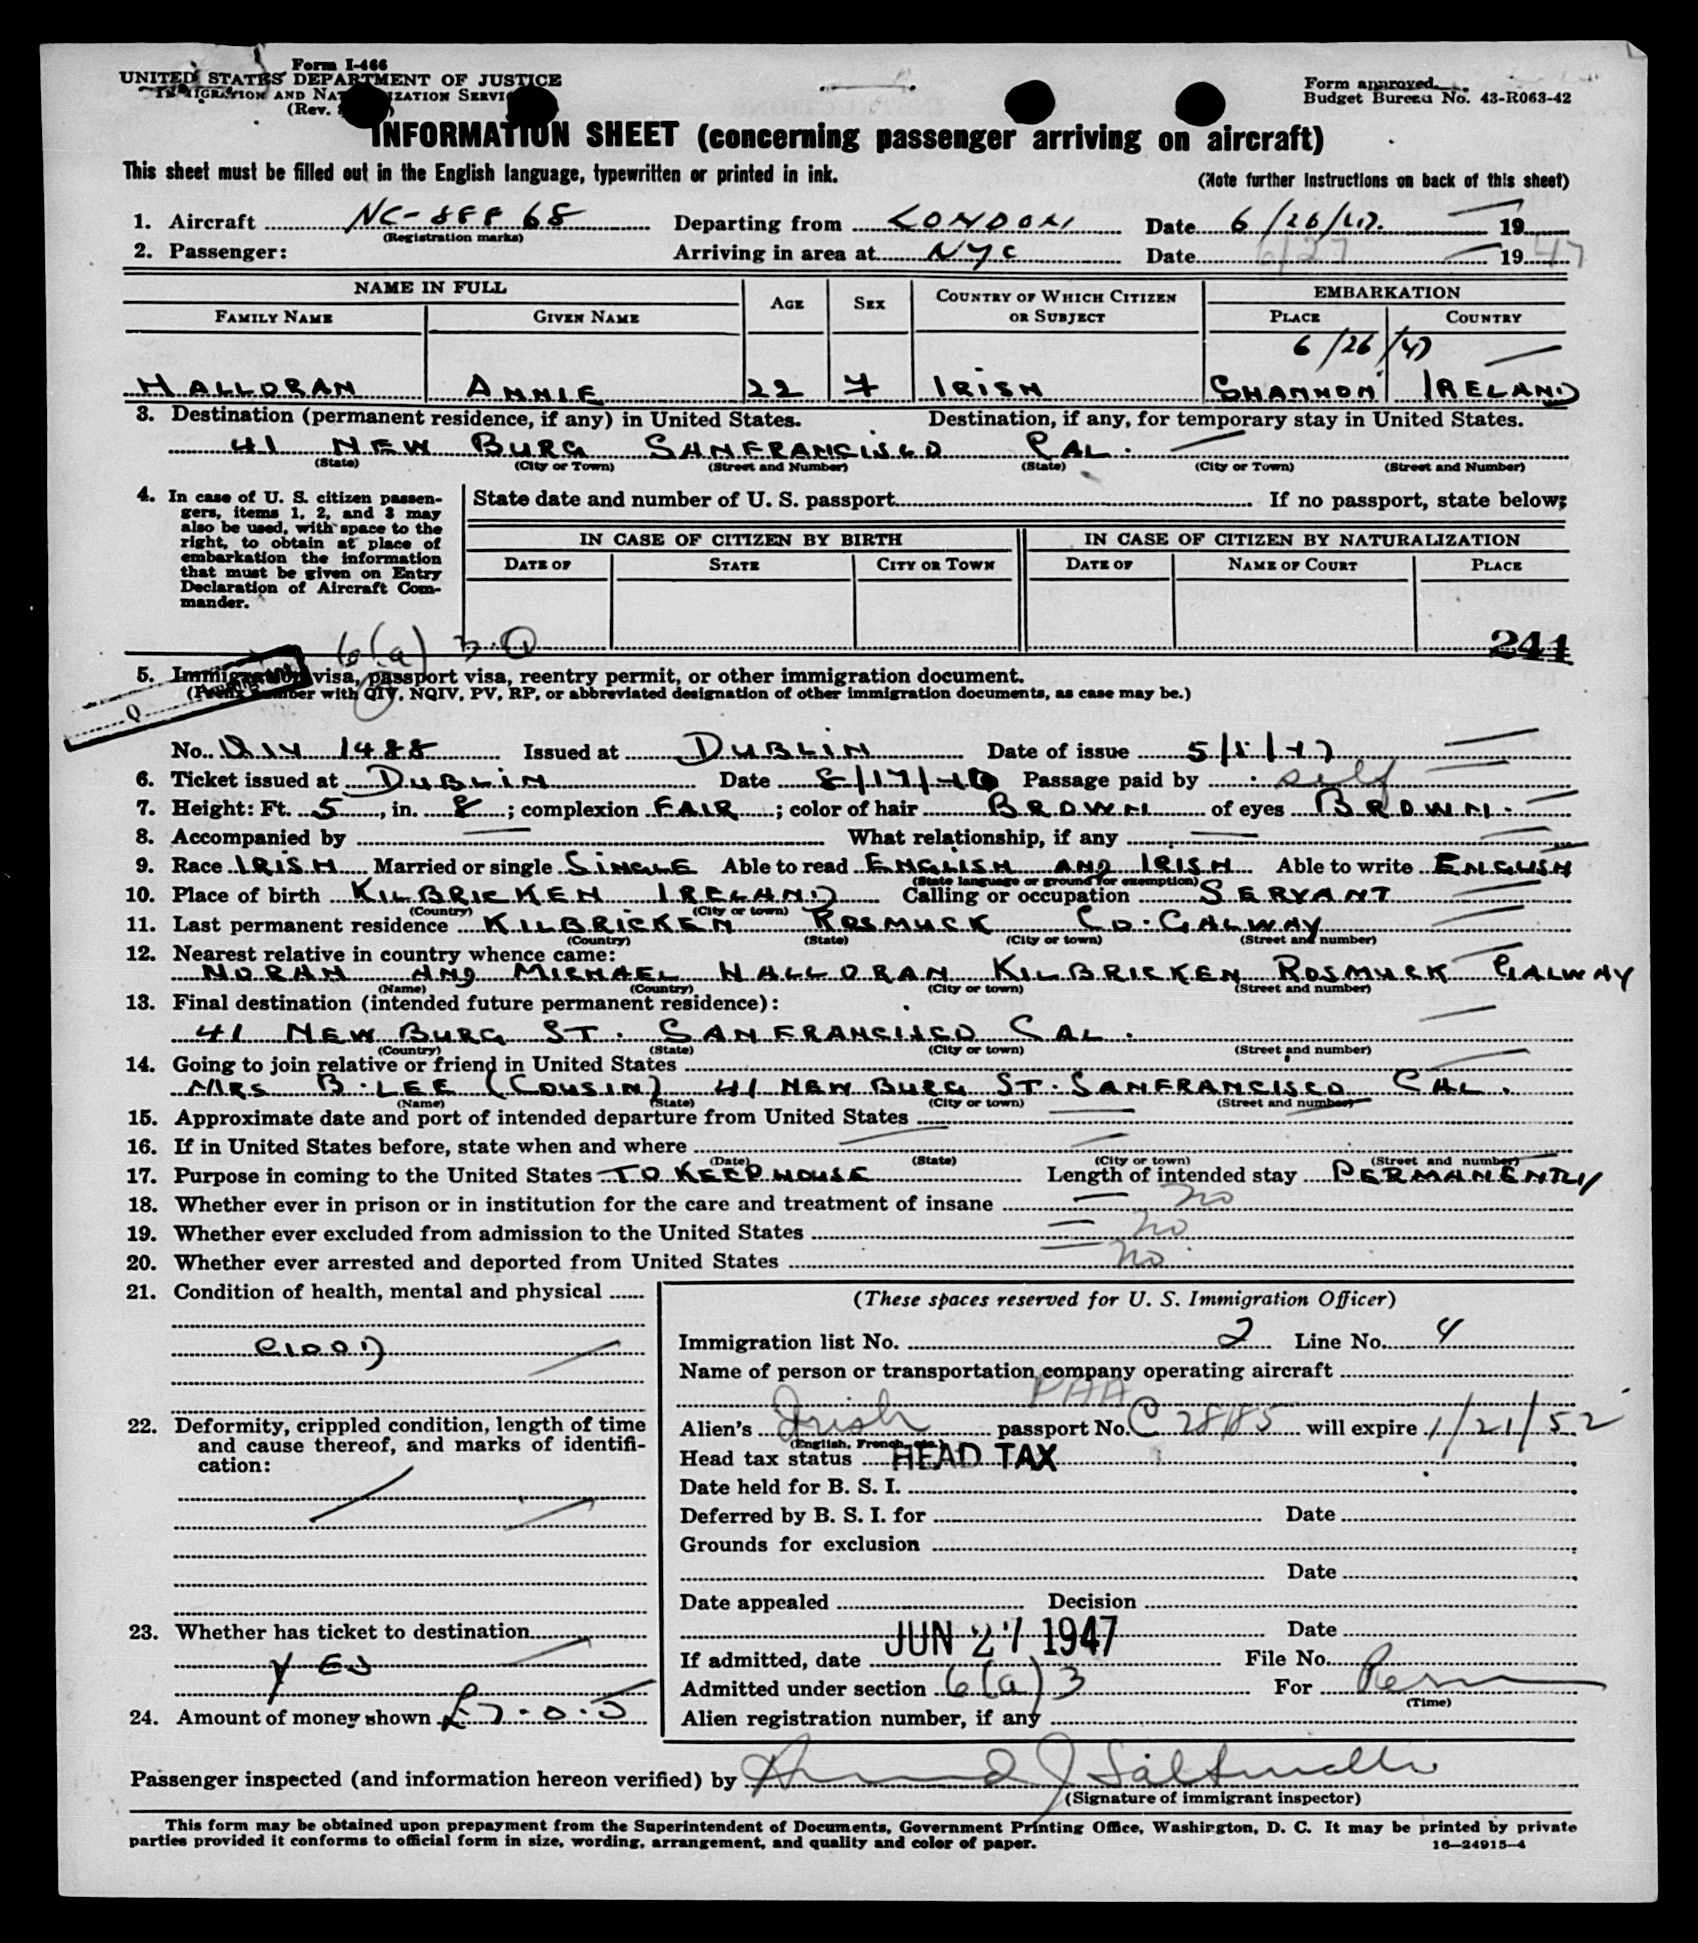 Form I-466
UNITED STATES DEPARTMENT OF JUSTICE
IMMIGRATION AND NATURALIZATION SERVICE
(Rev.
Form approved.
Budget Bureau No. 43-R063-42
INFORMATION SHEET (concerning passenger arriving on aircraft)
This sheet must be filled out in the English language, typewritten or printed in ink. (Note further instructions on back of this sheet)
1. Aircraft NC-88868 Departing from LONDON Date 6/26/47. 19
(Registration marks)
2. Passenger: Arriving in area at NYC Date 6/27 1947
NAME IN FULL AGE SEX COUNTRY OF WHICH CITIZEN OR SUBJECT EMBARKATION
FAMILY NAME GIVEN NAME PLACE COUNTRY
6/26/47
HALLORAN ANNIE 22 F IRISH SHANNON IRELAND
3. Destination (permanent residence, if any) in United States. Destination, if any, for temporary stay in United States.
41 NEW BURG SANFRANCISCO CAL.
(State) (City or Town) (Street and Number) (State) (City or Town) (Street and Number)
4. In case of U. S. citizen passengers, items 1, 2, and 3 may also be used, with space to the right, to obtain at place of embarkation the information that must be given on Entry Declaration of Aircraft Commander.
State date and number of U. S. passport If no passport, state below;
IN CASE OF CITIZEN BY BIRTH IN CASE OF CITIZEN BY NATURALIZATION
DATE OF STATE CITY OR TOWN DATE OF NAME OF COURT PLACE
241
6(a) 3 Q
5. Immigration visa, passport visa, reentry permit, or other immigration document.
(Prefix number with QIV, NQIV, PV, RP, or abbreviated designation of other immigration documents, as case may be.)
Q
No. QIV 1488 Issued at DUBLIN Date of issue 5/1/47
6. Ticket issued at DUBLIN Date 8/17/46 Passage paid by self
7. Height: Ft. 5, in. 8; complexion FAIR; color of hair BROWN of eyes BROWN.
8. Accompanied by What relationship, if any
9. Race IRISH Married or single SINGLE Able to read ENGLISH AND IRISH Able to write ENGLISH
(State language or ground for exemption)
10. Place of birth KILBRICKEN IRELAND Calling or occupation SERVANT
(Country) (City or town)
11. Last permanent residence KILBRICKEN ROSMUCK CO. GALWAY
(Country) (State) (City or town) (Street and number)
12. Nearest relative in country whence came:
NORAH AND MICHAEL HALLORAN KILBRICKEN ROSMUCK GALWAY
(Name) (Country) (City or town) (Street and number)
13. Final destination (intended future permanent residence):
41 NEW BURG ST. SANFRANCISCO CAL.
(Country) (State) (City or town) (Street and number)
14. Going to join relative or friend in United States
MRS B. LEE (COUSIN) 41 NEW BURG ST. SANFRANCISCO CAL.
(Name) (State) (City or town) (Street and number)
15. Approximate date and port of intended departure from United States
16. If in United States before, state when and where
(Date) (State) (City or town) (Street and number)
17. Purpose in coming to the United States TO KEEP HOUSE Length of intended stay PERMANENTLY
18. Whether ever in prison or in institution for the care and treatment of insane no
19. Whether ever excluded from admission to the United States no
20. Whether ever arrested and deported from United States no.
21. Condition of health, mental and physical
GOOD
22. Deformity, crippled condition, length of time and cause thereof, and marks of identification:
23. Whether has ticket to destination
YES
24. Amount of money shown £7.0.5
(These spaces reserved for U. S. Immigration Officer)
Immigration list No. 2 Line No. 4
Name of person or transportation company operating aircraft
PAA
Alien's Irish passport No. C 28185 will expire 1/21/52
(English, French, etc.)
Head tax status HEAD TAX
Date held for B. S. I.
Deferred by B. S. I. for Date
Grounds for exclusion
Date
Date appealed Decision
Date
If admitted, date JUN 27 1947 File No.
Admitted under section 6(a)3 For Perm
(Time)
Alien registration number, if any
Passenger inspected (and information hereon verified) by
(Signature of immigrant inspector)
This form may be obtained upon prepayment from the Superintendent of Documents, Government Printing Office, Washington, D. C. It may be printed by private
parties provided it conforms to official form in size, wording, arrangement, and quality and color of paper. 16—24915-4